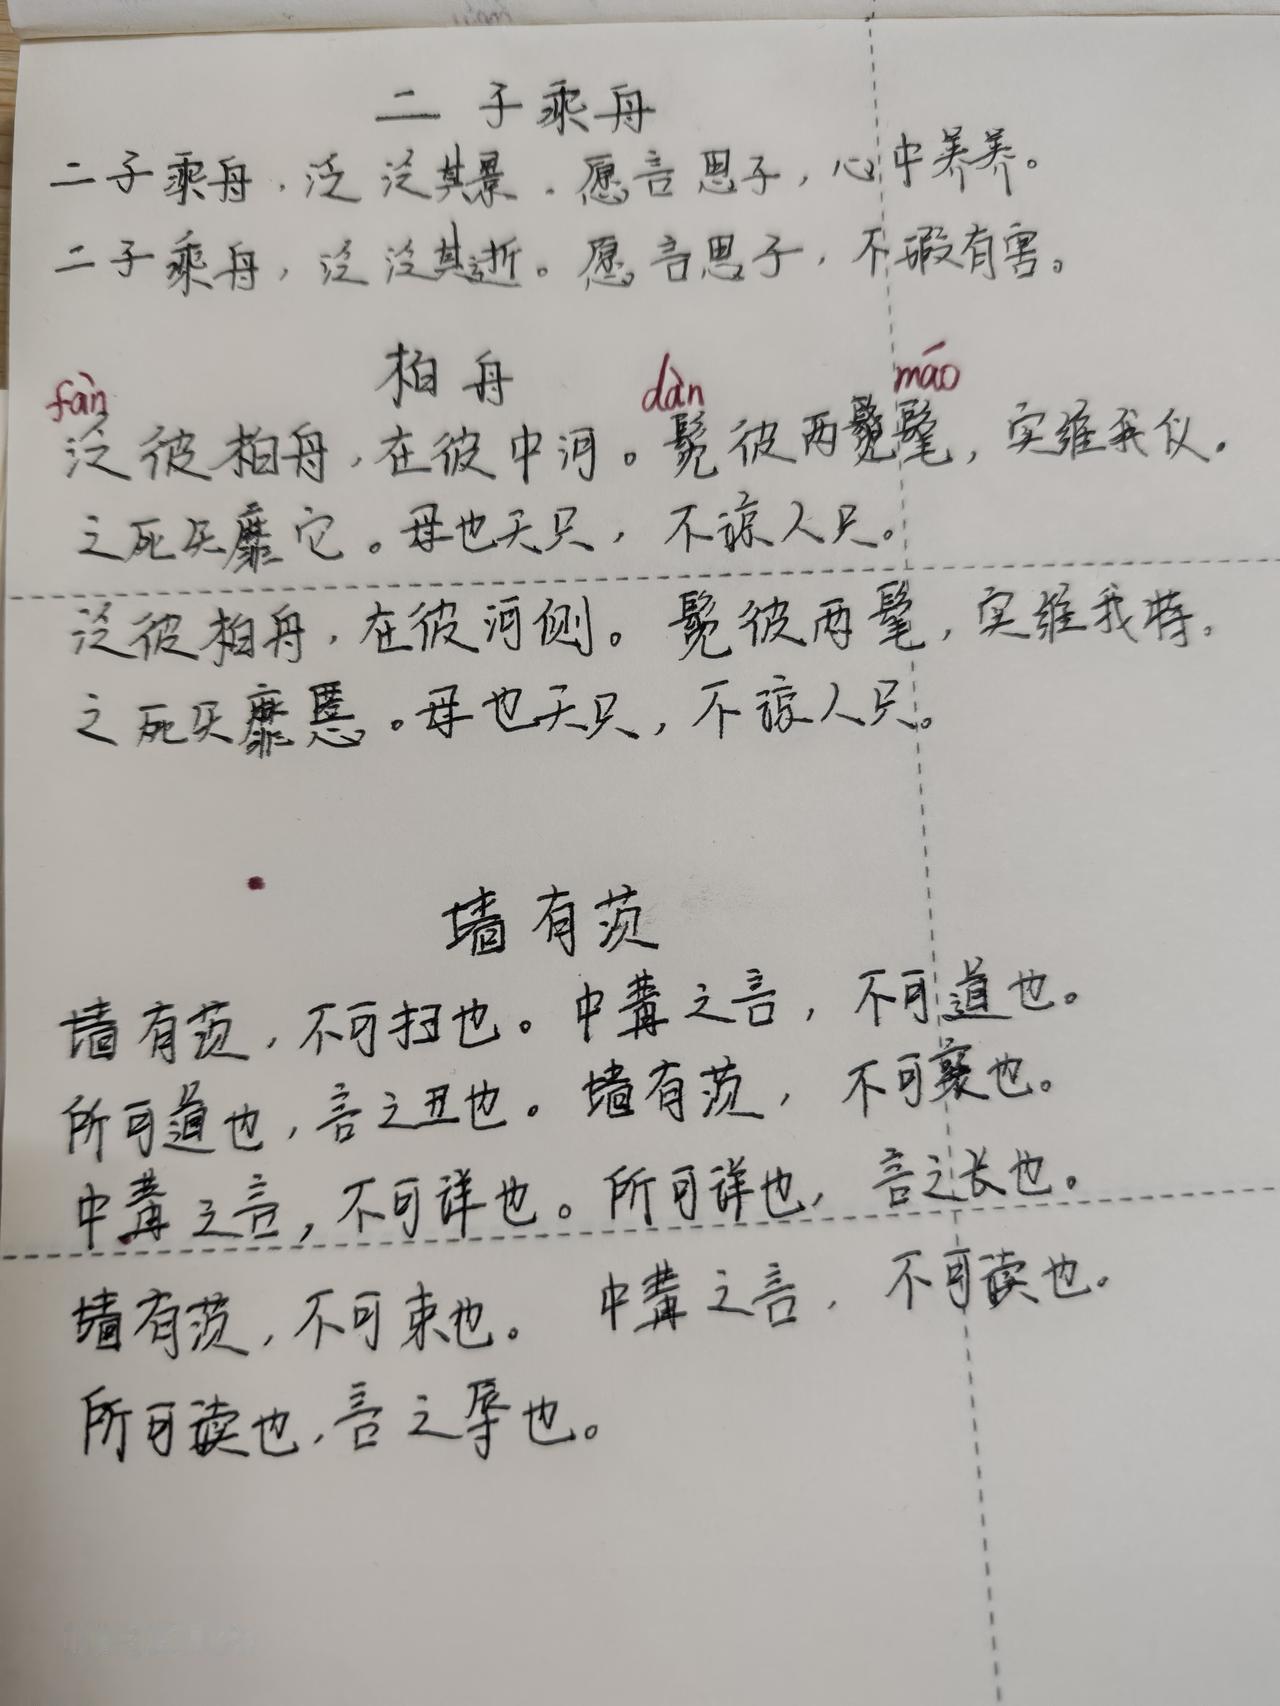 二子乘舟
二子乘舟，泛泛其景。愿言思子，心中养养。
二子乘舟，泛泛其逝。愿言思子，不瑕有害。
柏舟
fàn dàn máo
泛彼柏舟，在彼中河。髧彼两髦，实维我仪。
之死矢靡它。母也天只，不谅人只。
泛彼柏舟，在彼河侧。髧彼两髦，实维我特。
之死矢靡慝。母也天只，不谅人只。
墙有茨
墙有茨，不可扫也。中冓之言，不可道也。
所可道也，言之丑也。墙有茨，不可襄也。
中冓之言，不可详也。所可详也，言之长也。
墙有茨，不可束也。中冓之言，不可读也。
所可读也，言之辱也。